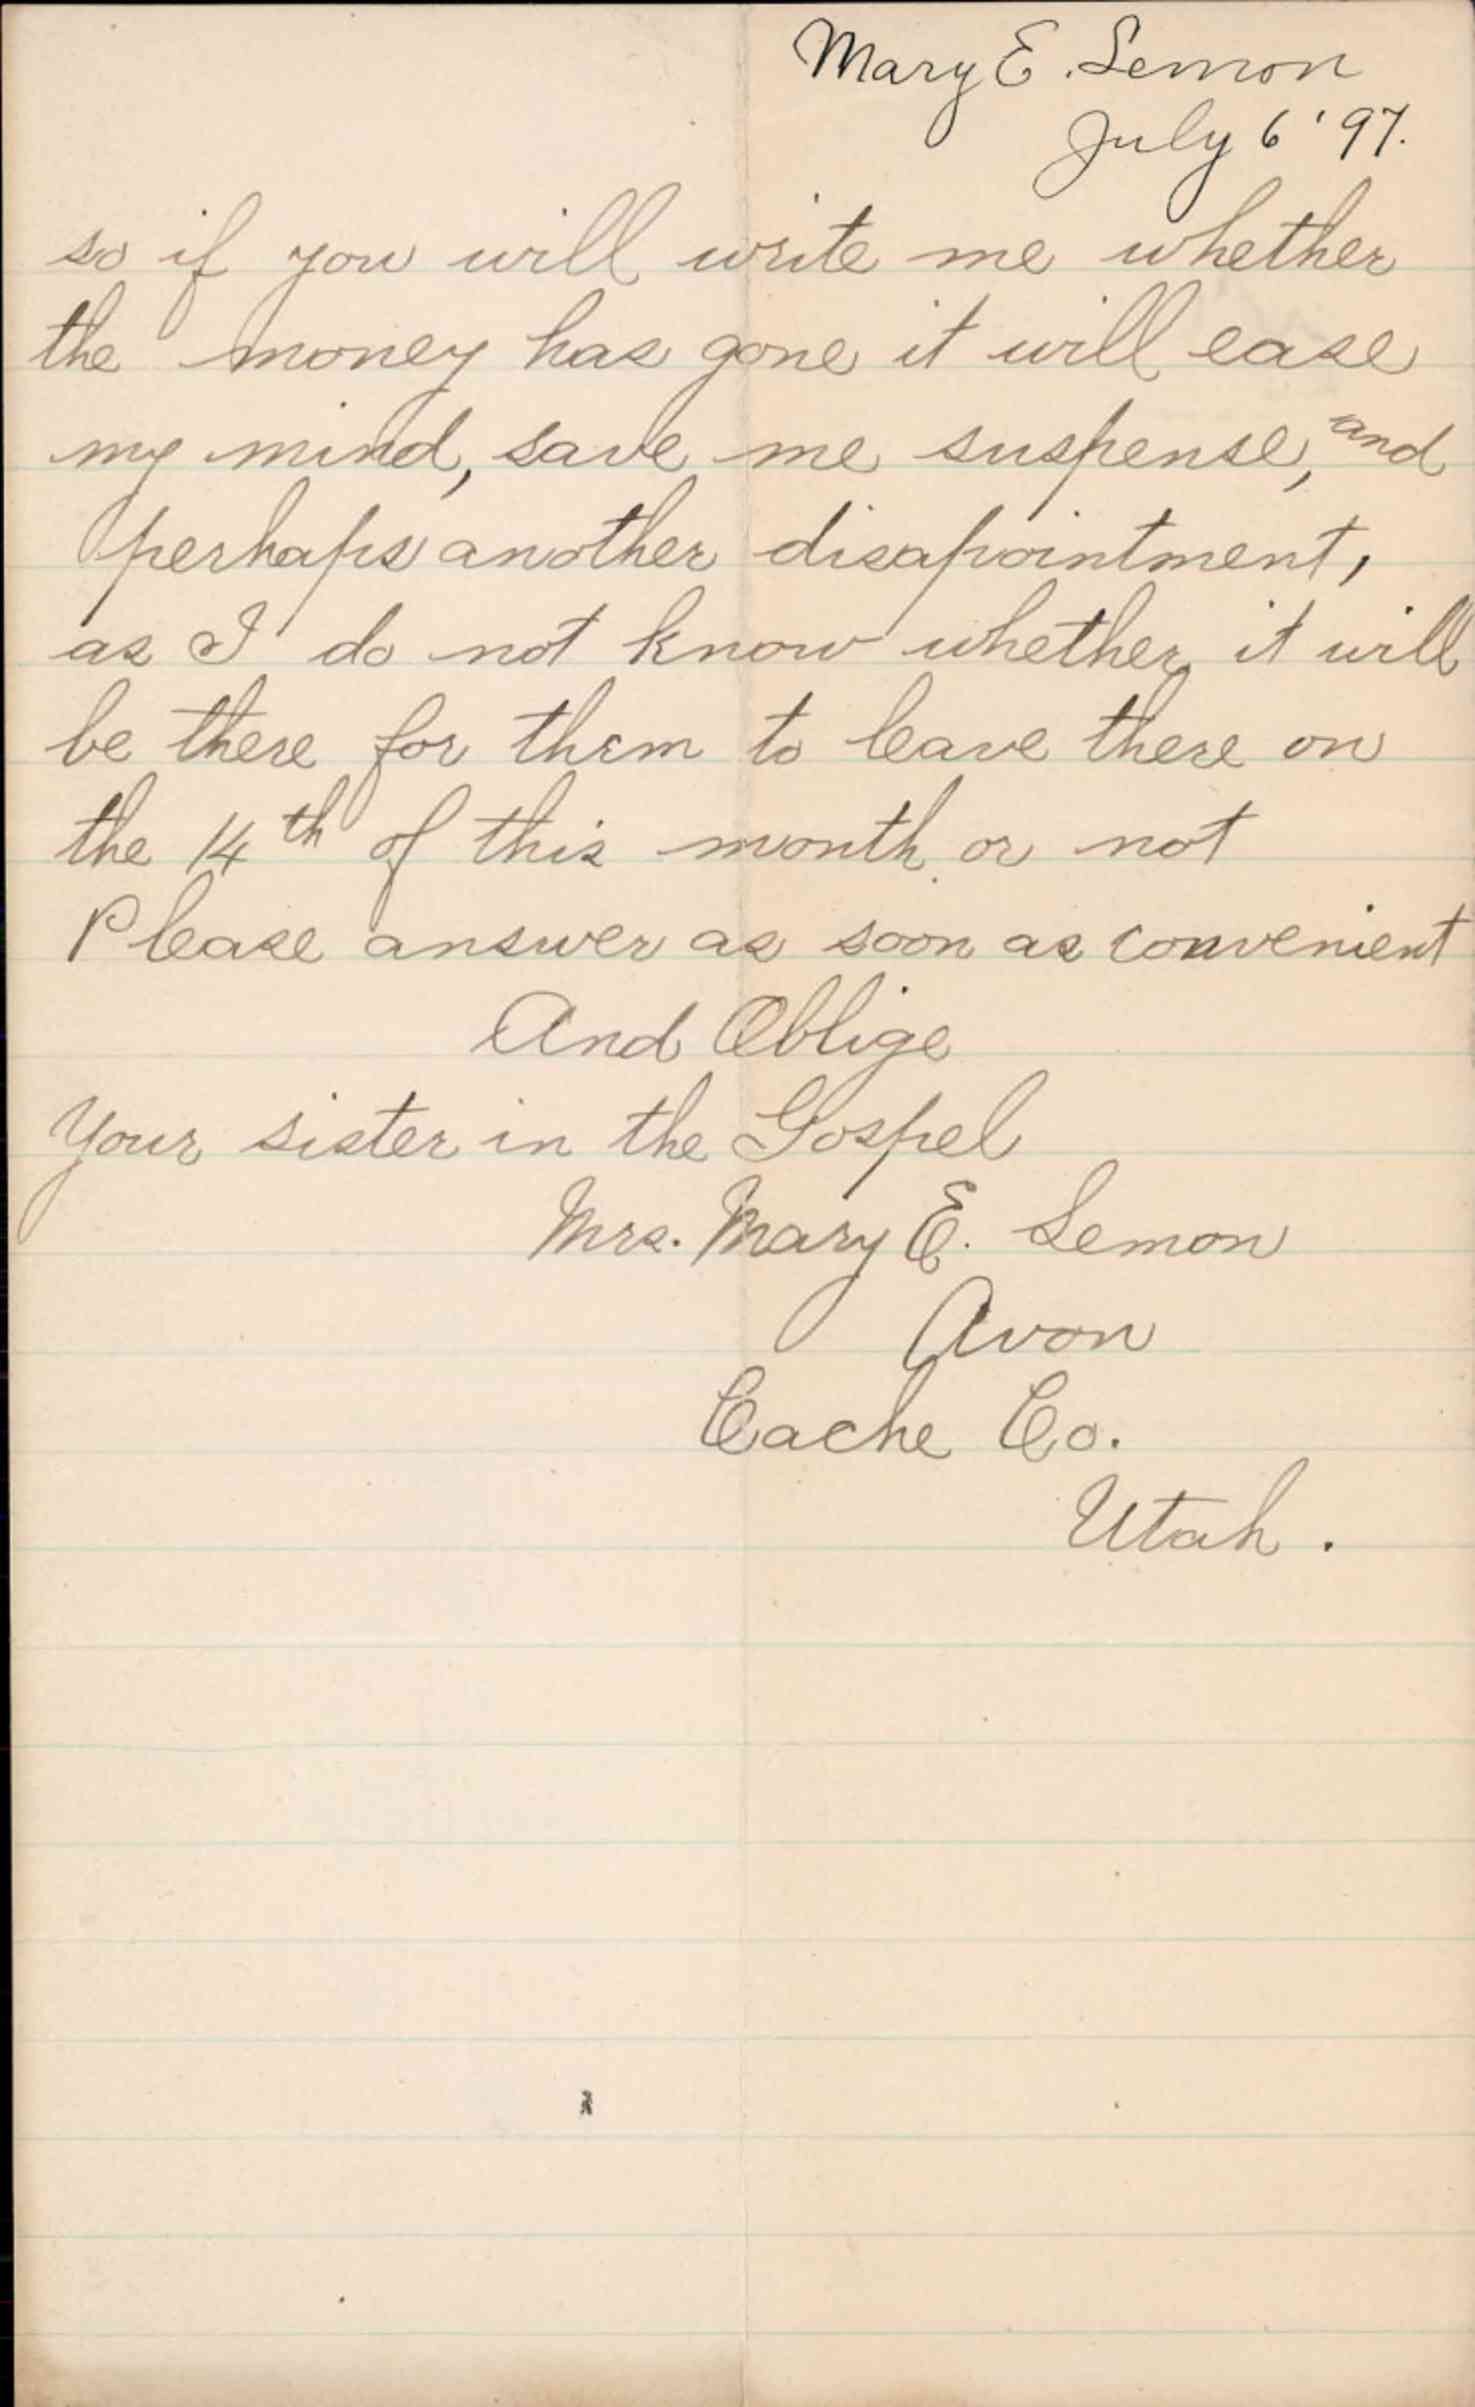 Mary E. Lemon
July 6 '97.
so if you will write me whether
the money has gone it will ease
my mind, save me suspense, and
perhaps another disapointment,
as I do not know whether it will
be there for them to leave there on
the 14th of this month or not
Please answer as soon as convenient
And Oblige
Your sister in the Gospel
Mrs. Mary E. Lemon
Avon
Cache Co.
Utah.